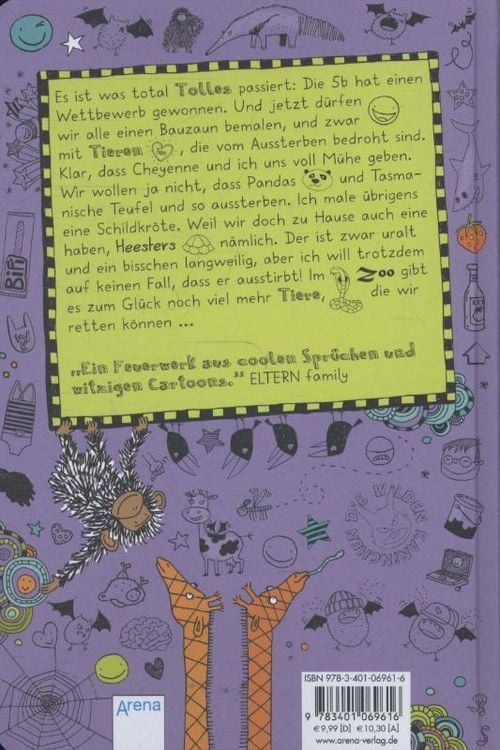 Es ist was total Tolles passiert: Die 5b hat einen
Wettbewerb gewonnen. Und jetzt dürfen
wir alle einen Bauzaun bemalen, und zwar
mit Tieren, die vom Aussterben bedroht sind.
Klar, dass Cheyenne und ich uns voll Mühe geben.
Wir wollen ja nicht, dass Pandas und Tasma-
nische Teufel und so aussterben. Ich male übrigens
eine Schildkröte. Weil wir doch zu Hause auch eine
haben, Heesters nämlich. Der ist zwar uralt
und ein bisschen langweilig, aber ich will trotzdem
auf keinen Fall, dass er ausstirbt! Im Zoo gibt
es zum Glück noch viel mehr Tiere, die wir
retten können ...
„Ein Feuerwerk aus coolen Sprüchen und
witzigen Cartoons.“ ELTERN family
BiFi
DIE WILDEN KANINCHEN
Arena
ISBN 978-3-401-06961-6
9 783401 069616
€ 9,99 [D] € 10,30 [A]
www.arena-verlag.de